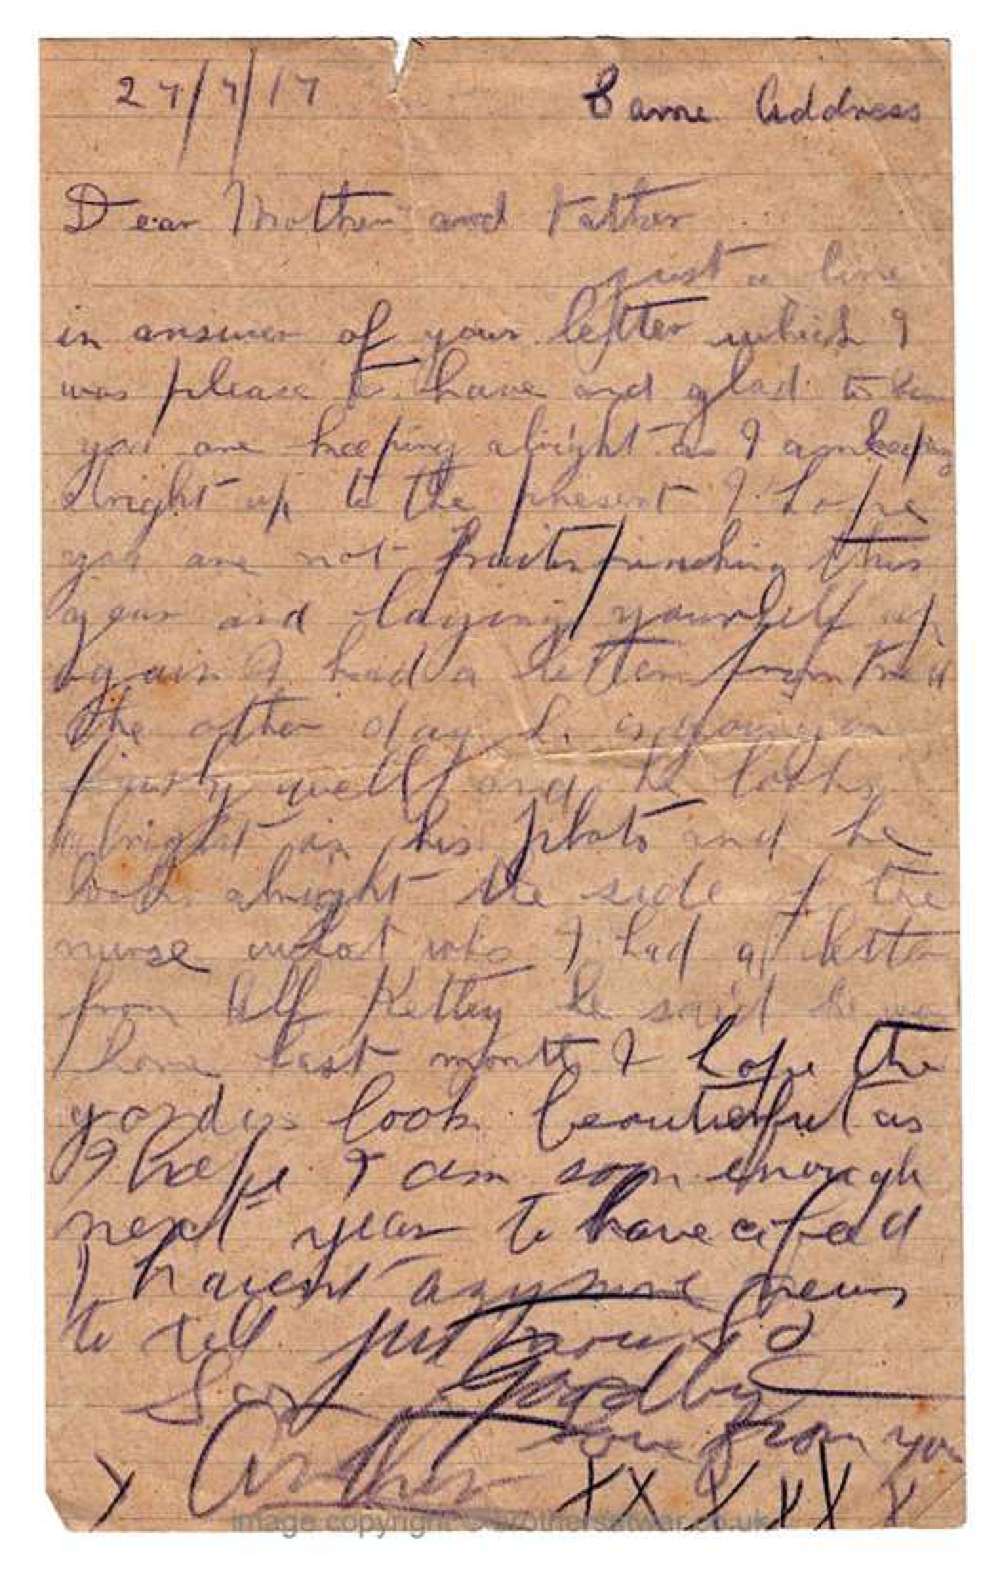 27/7/17
Same Address
Dear Mother and Father
just a line
in answer of your letter which I
was please to have and glad to
you are keeping alright as I am keeping
alright up to the present I hope
you are not fruiterpinching this
year and laying yourself up
again I had a letter from Fred
the other day he is
fairly well and he looks
alright in his photo and he
looks alright the side of the
nurse what who I had a letter
from Alf Kettey he said he was
home last month I hope the
garden look beautieful as
I hope I am soon enough
next year to have a feed
I havent anymore news
to tell just now so I
Goodby
love from your
Son
Arther
X XX X X X X
image copyright © brothersatwar.co.uk